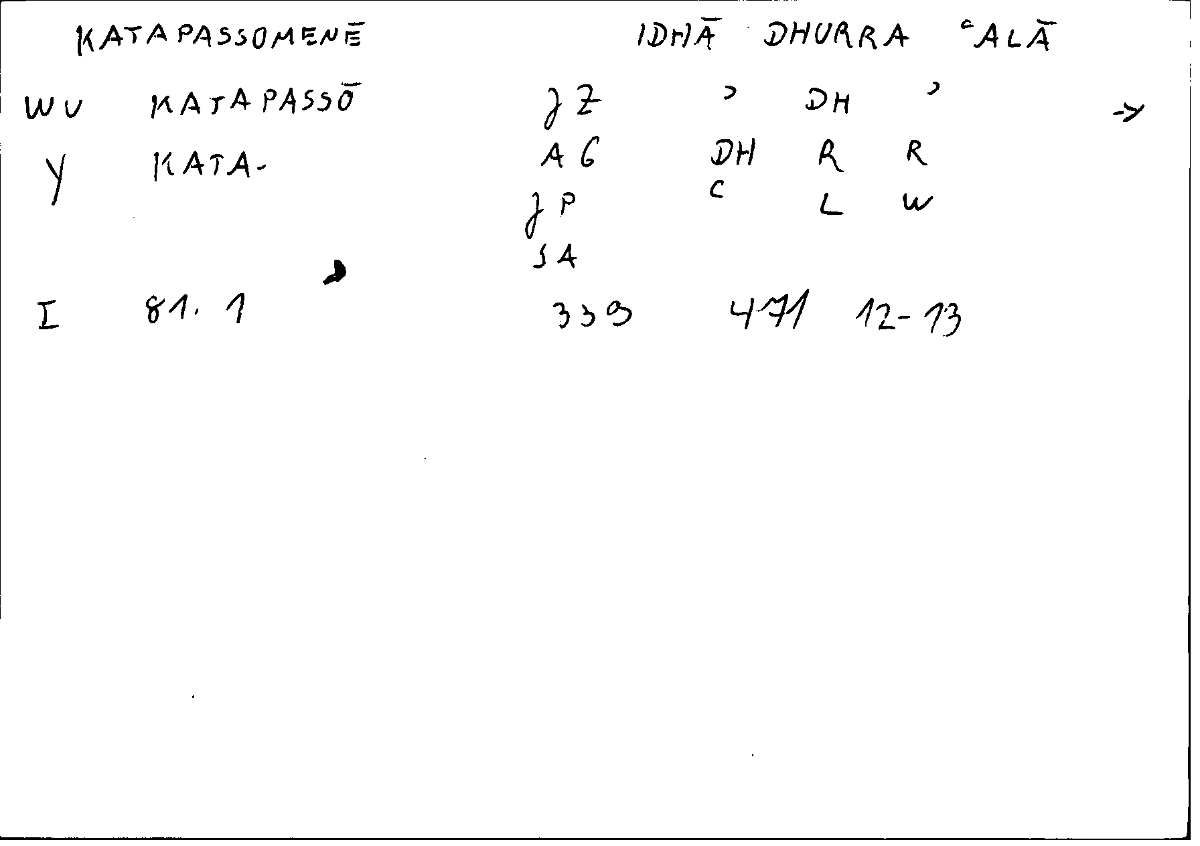 KATAPASSOMENĒ IDHĀ DHURRA ʿALĀ
WU KATAPASSŌ JZ ʾ DH ʾ →
Y KATA- AG DH R R
JP ʿ L W
SA
I 81. 1 339 471 12-13